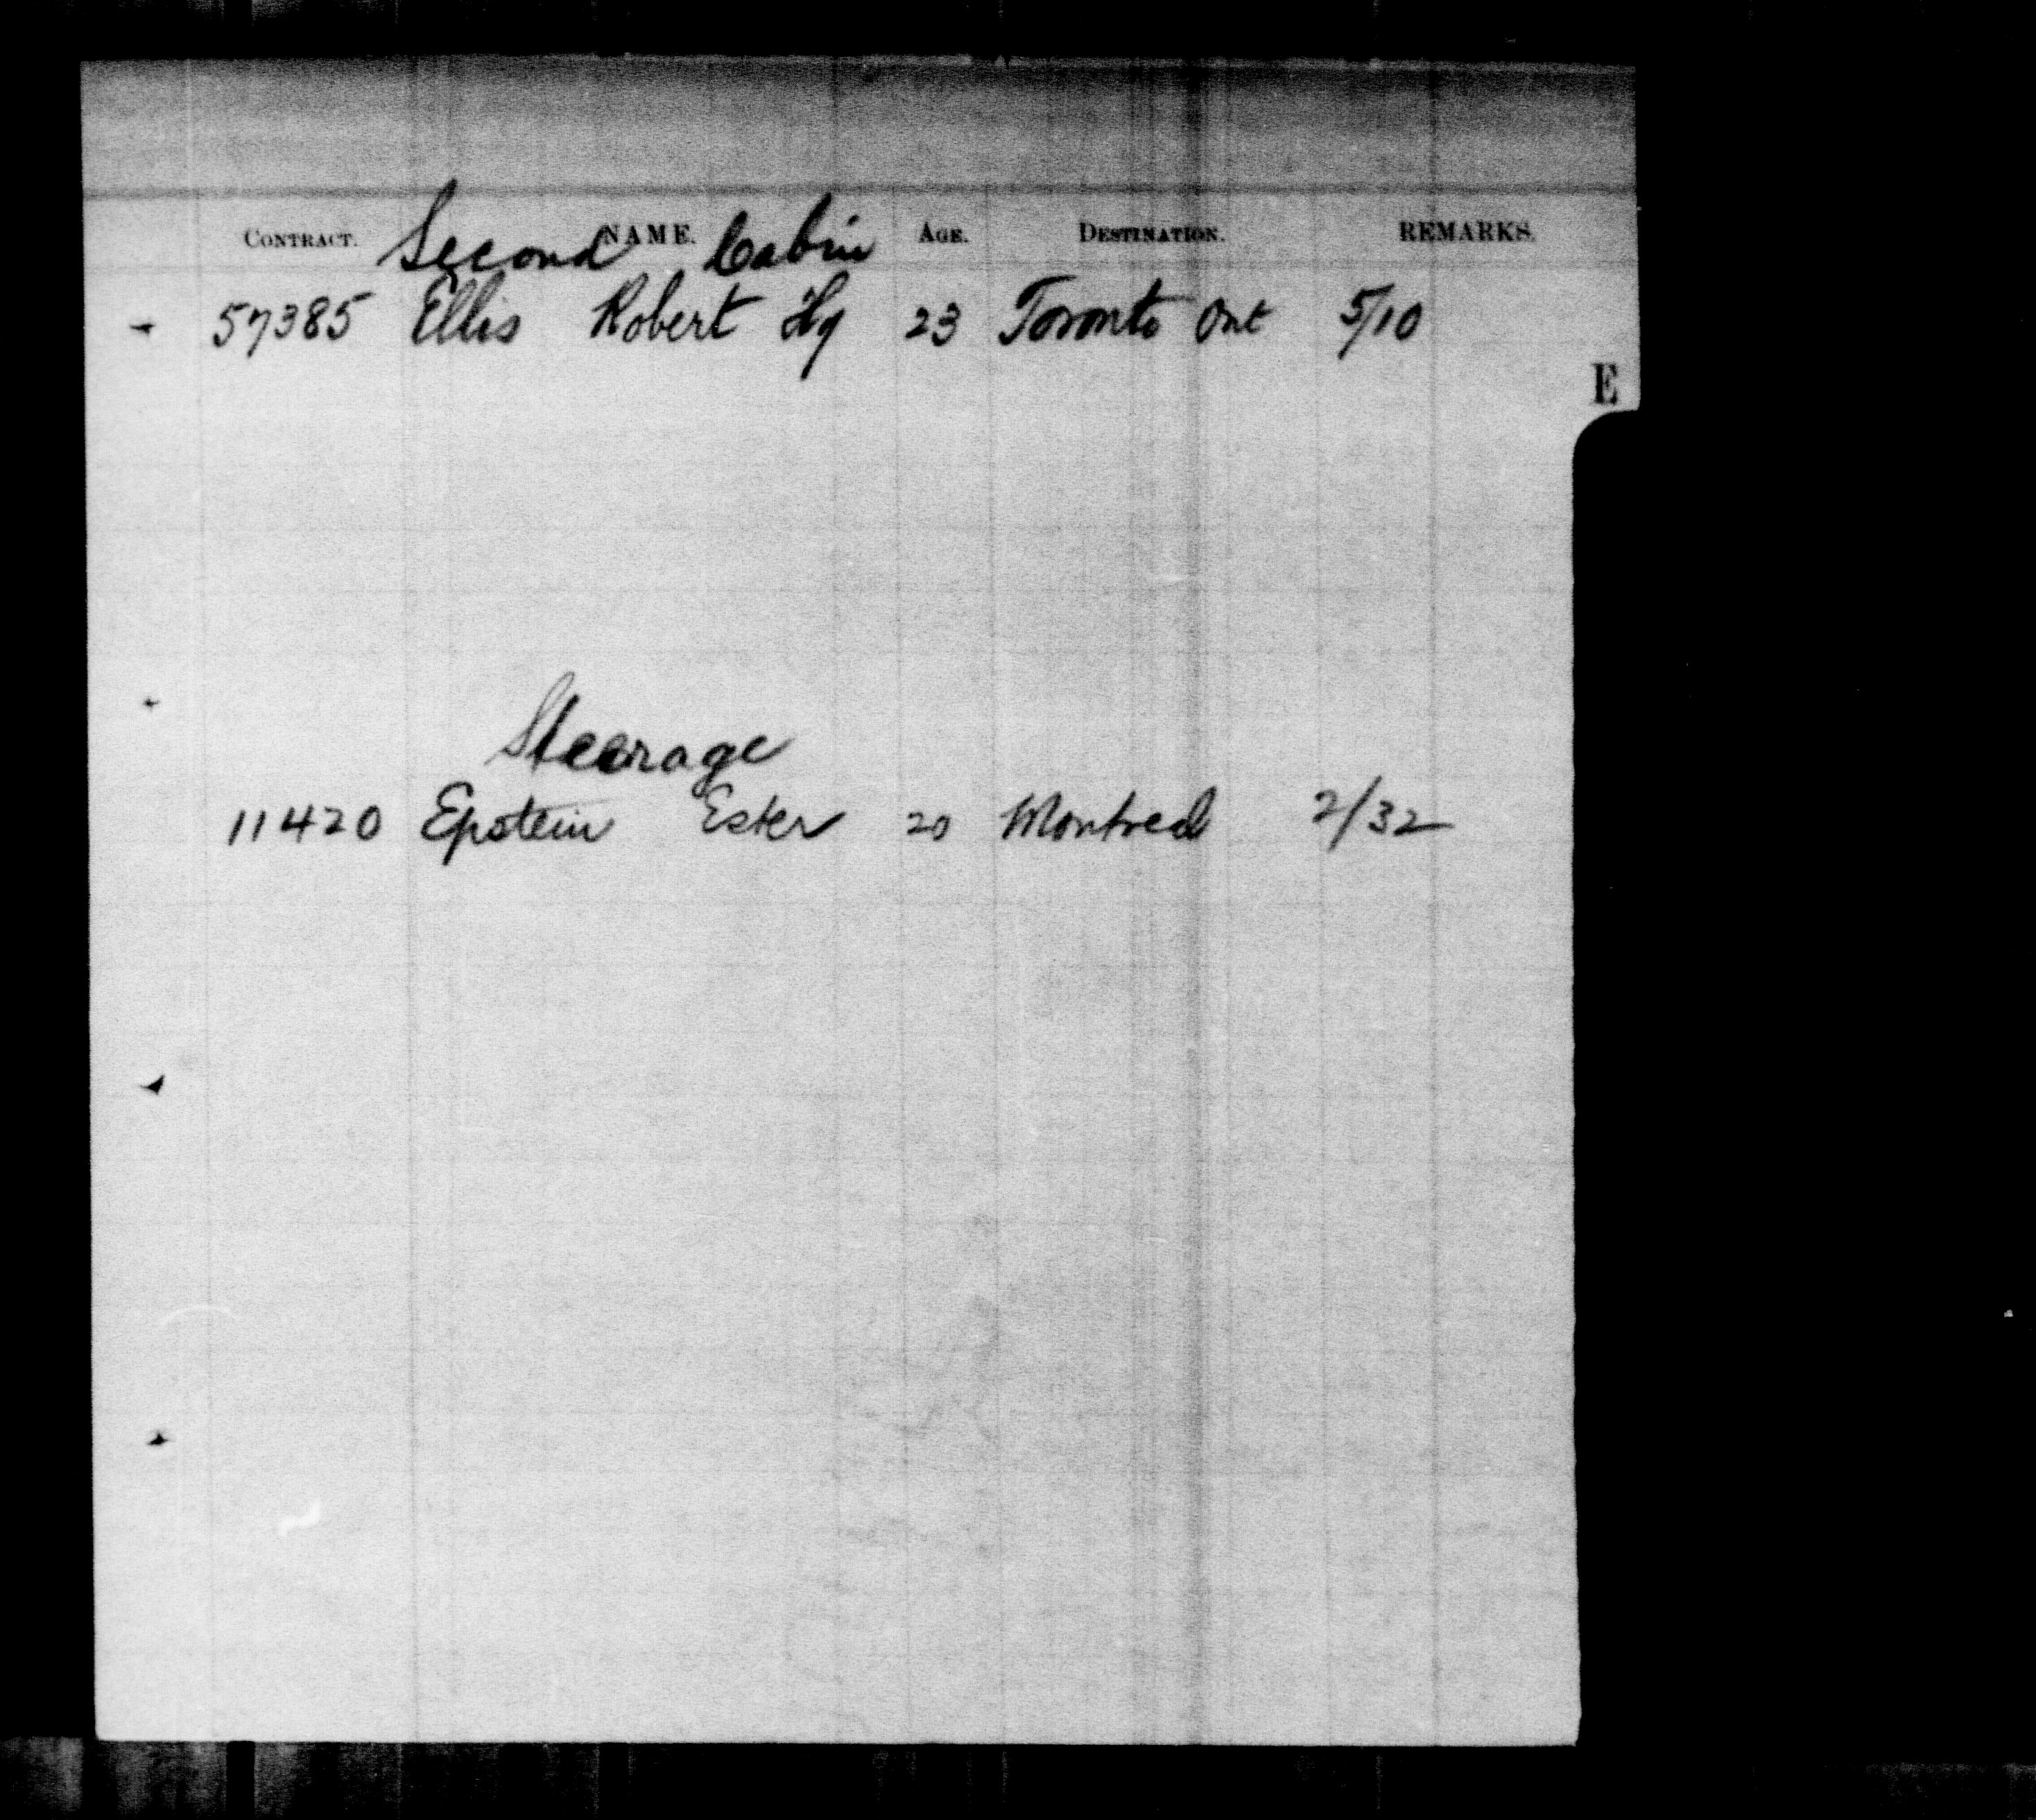 CONTRACT. NAME. AGE. DESTINATION. REMARKS.
Second Cabin
57385 Ellis Robert Hy 23 Toronto Ont 5/10
E
Steerage
11420 Epstein Ester 20 Montreal 2/32